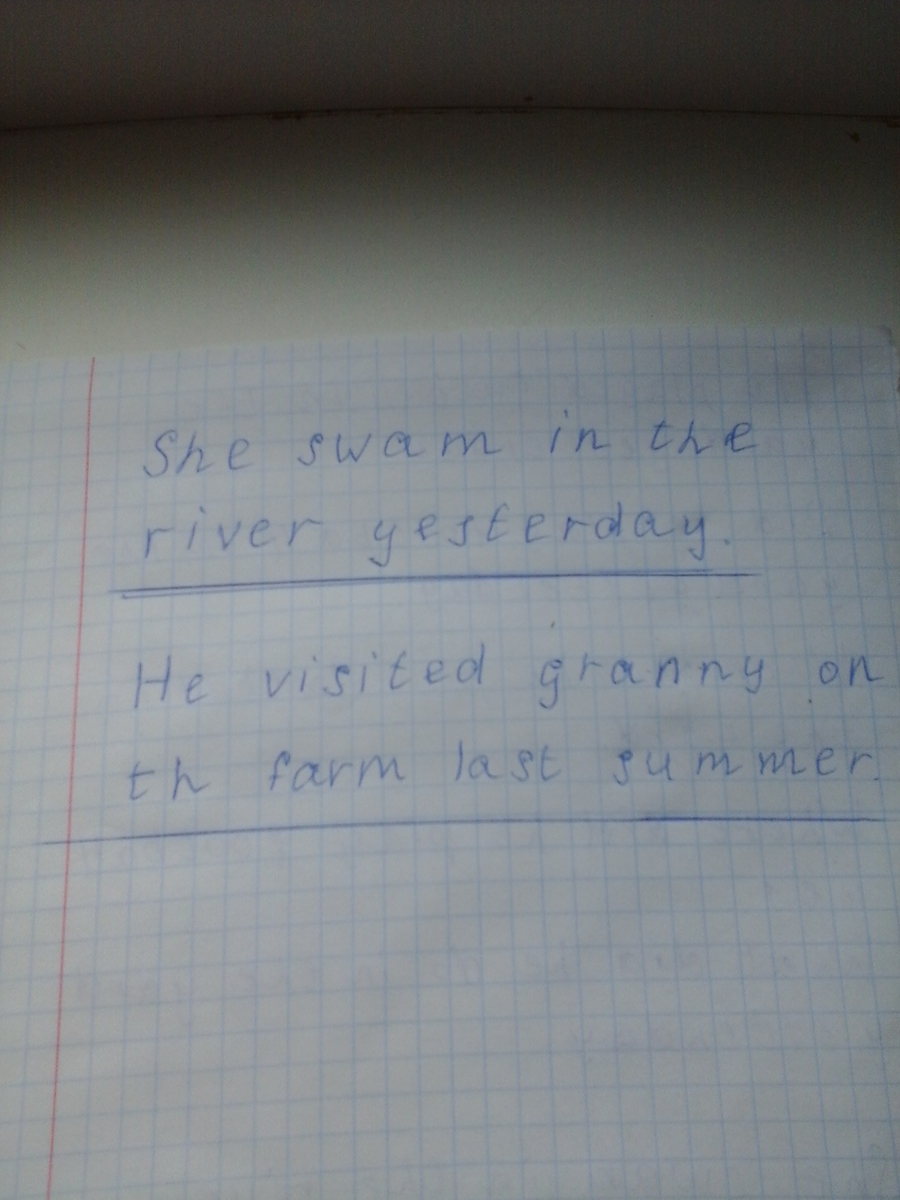 She swam in the
river yesterday.
He visited granny on
th farm last summer.